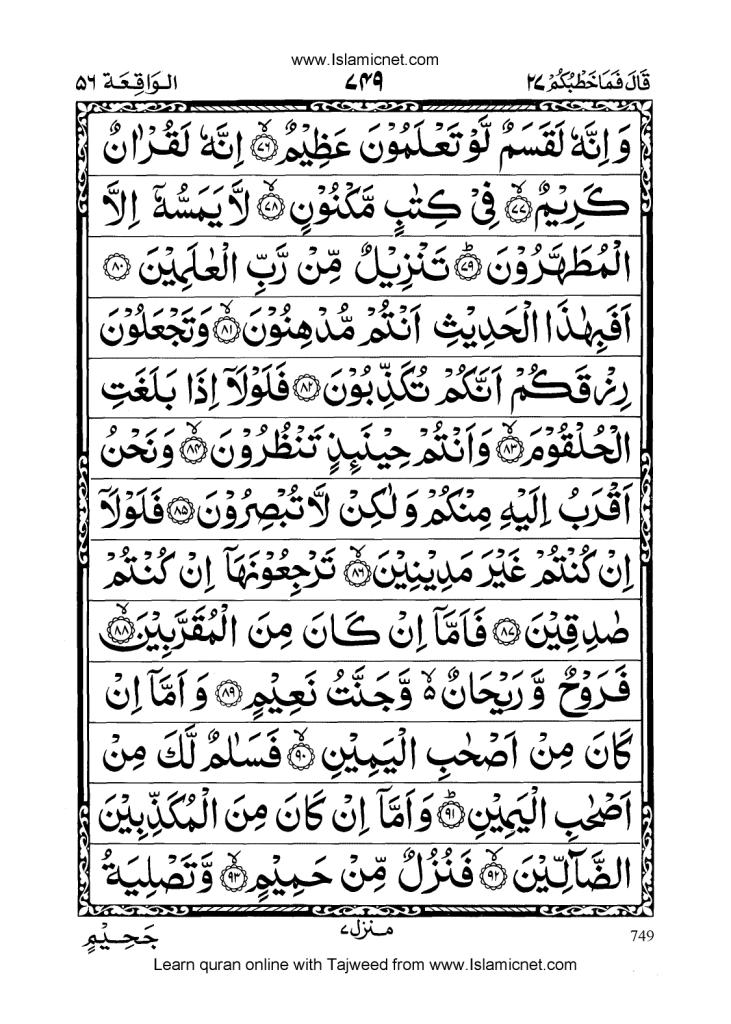 www.Islamicnet.com
قَالَ فَمَا خَطْبُكُمْ ٢٧ ٧٤٩ الْوَاقِعَة ٥٦
وَ اِنَّهٗ لَقَسَمٌ لَّوْ تَعْلَمُوْنَ عَظِيْمٌ ۙ‏﴿٧٦﴾ اِنَّهٗ لَقُرْاٰنٌ
كَرِيْمٌ ۙ‏﴿٧٧﴾ فِيْ كِتٰبٍ مَّكْنُوْنٍ ۙ‏﴿٧٨﴾ لَّا يَمَسُّهٗۤ اِلَّا
الْمُطَهَّرُوْنَ ؕ‏﴿٧٩﴾ تَنْزِيْلٌ مِّنْ رَّبِّ الْعٰلَمِيْنَ ﴿٨٠﴾
اَفَبِهٰذَا الْحَدِيْثِ اَنْتُمْ مُّدْهِنُوْنَ ۙ‏﴿٨١﴾ وَتَجْعَلُوْنَ
رِزْقَكُمْ اَنَّكُمْ تُكَذِّبُوْنَ ﴿٨٢﴾ فَلَوْلَاۤ اِذَا بَلَغَتِ
الْحُلْقُوْمَ ۙ‏﴿٨٣﴾ وَاَنْتُمْ حِيْنَىِٕذٍ تَنْظُرُوْنَ ۙ‏﴿٨٤﴾ وَنَحْنُ
اَقْرَبُ اِلَيْهِ مِنْكُمْ وَلٰكِنْ لَّا تُبْصِرُوْنَ ﴿٨٥﴾ فَلَوْلَاۤ
اِنْ كُنْتُمْ غَيْرَ مَدِيْنِيْنَ ۙ‏﴿٨٦﴾ تَرْجِعُوْنَهَاۤ اِنْ كُنْتُمْ
صٰدِقِيْنَ ﴿٨٧﴾ فَاَمَّاۤ اِنْ كَانَ مِنَ الْمُقَرَّبِيْنَ ۙ‏﴿٨٨﴾
فَرَوْحٌ وَّ رَيْحَانٌ ۙ۬ وَّجَنَّتُ نَعِيْمٍ ﴿٨٩﴾ وَ اَمَّاۤ اِنْ
كَانَ مِنْ اَصْحٰبِ الْيَمِيْنِ ۙ‏﴿٩٠﴾ فَسَلٰمٌ لَّكَ مِنْ
اَصْحٰبِ الْيَمِيْنِ ؕ‏﴿٩١﴾ وَاَمَّاۤ اِنْ كَانَ مِنَ الْمُكَذِّبِيْنَ
الضَّآلِّيْنَ ۙ‏﴿٩٢﴾ فَنُزُلٌ مِّنْ حَمِيْمٍ ۙ‏﴿٩٣﴾ وَّتَصْلِيَةُ
منزل٧
جَحِيْمٍ
749
Learn quran online with Tajweed from www.Islamicnet.com